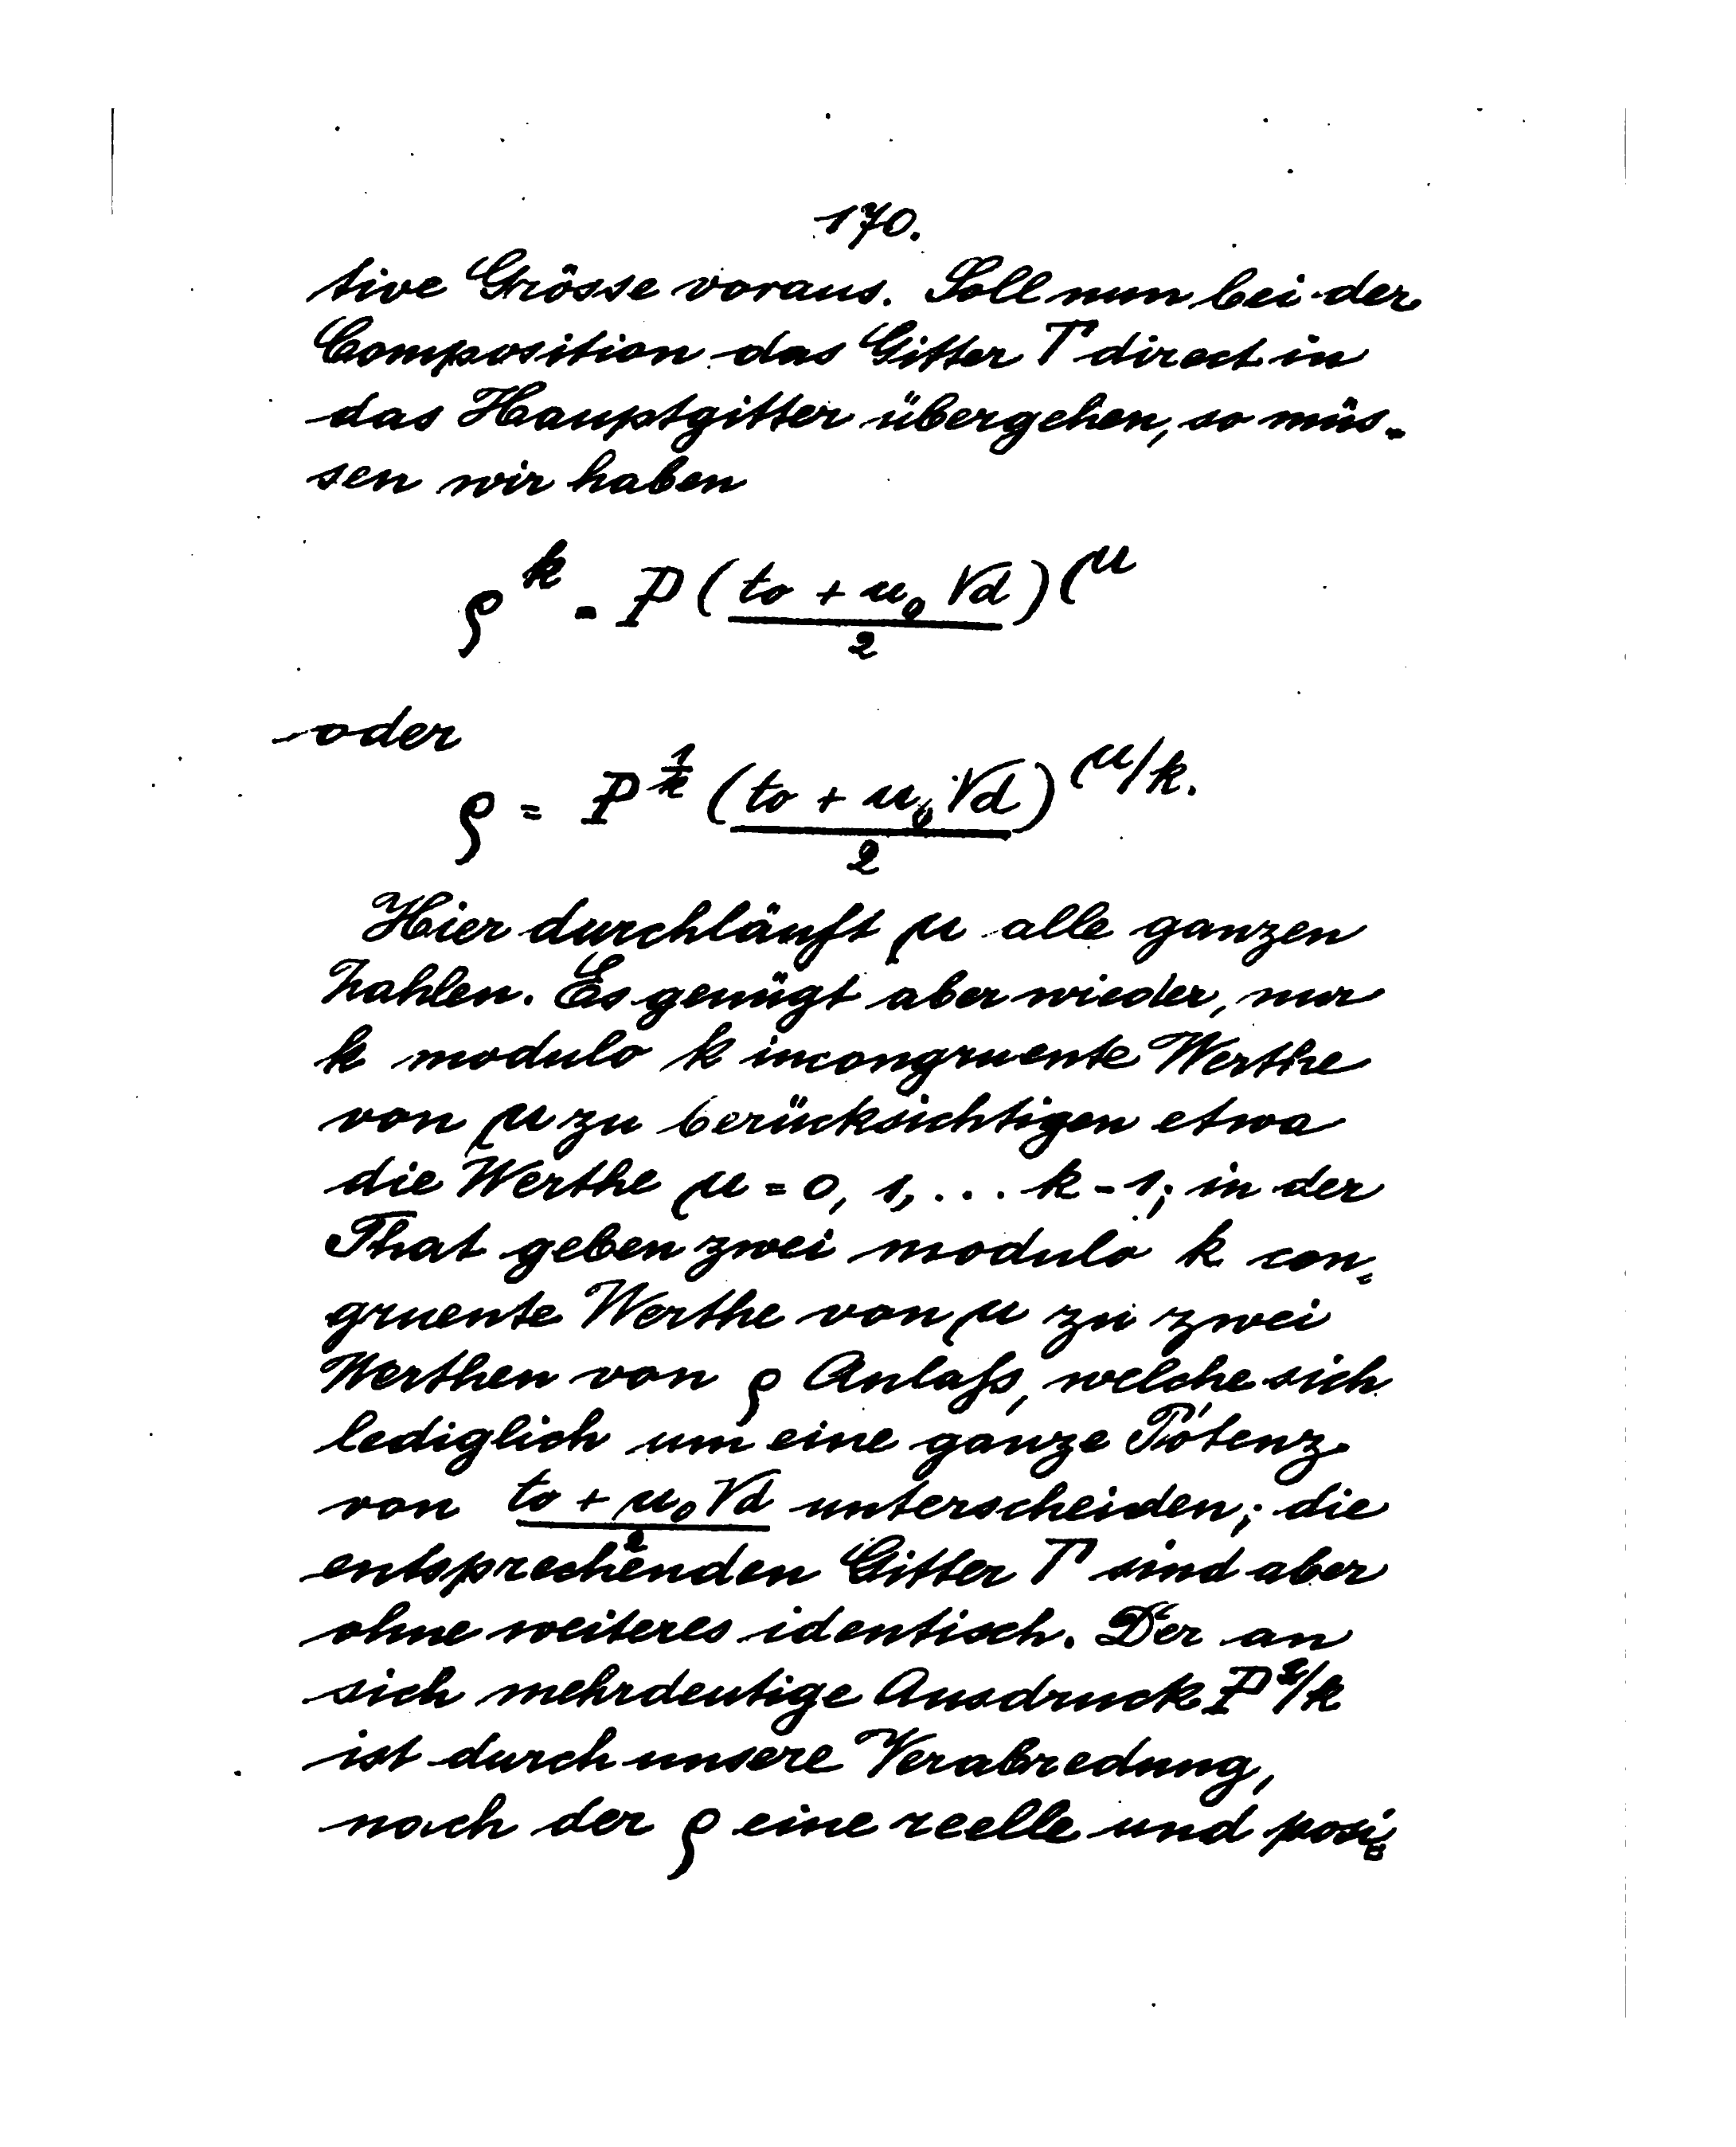 170.
tive Grösse voraus. Soll nun bei der
Composition das Gitter Γ direct in
das Hauptgitter übergehen, so müs-
sen wir haben
ρ^k = P ((t₀ + u₀ √d)/2)^μ
oder
ρ = P^(1/k) ((t₀ + u₀ √d)/2)^(μ/k).
Hier durchläuft μ alle ganzen
Zahlen. Es genügt aber wieder, nur
k modulo k incongruente Werthe
von μ zu berücksichtigen etwa
die Werthe μ = 0, 1, ... k-1; in der
That geben zwei modulo k con-
gruente Werthe von μ zu zwei
Werthen von ρ Anlaß, welche sich
lediglich um eine ganze Potenz
von (t₀ + u₀ √d)/2 unterscheiden; die
entsprechenden Gitter Γ sind aber
ohne weiteres identisch. Der an
sich mehrdeutige Ausdruck P^(1/k)
ist durch unsere Verabredung,
nach der ρ eine reelle und posi-